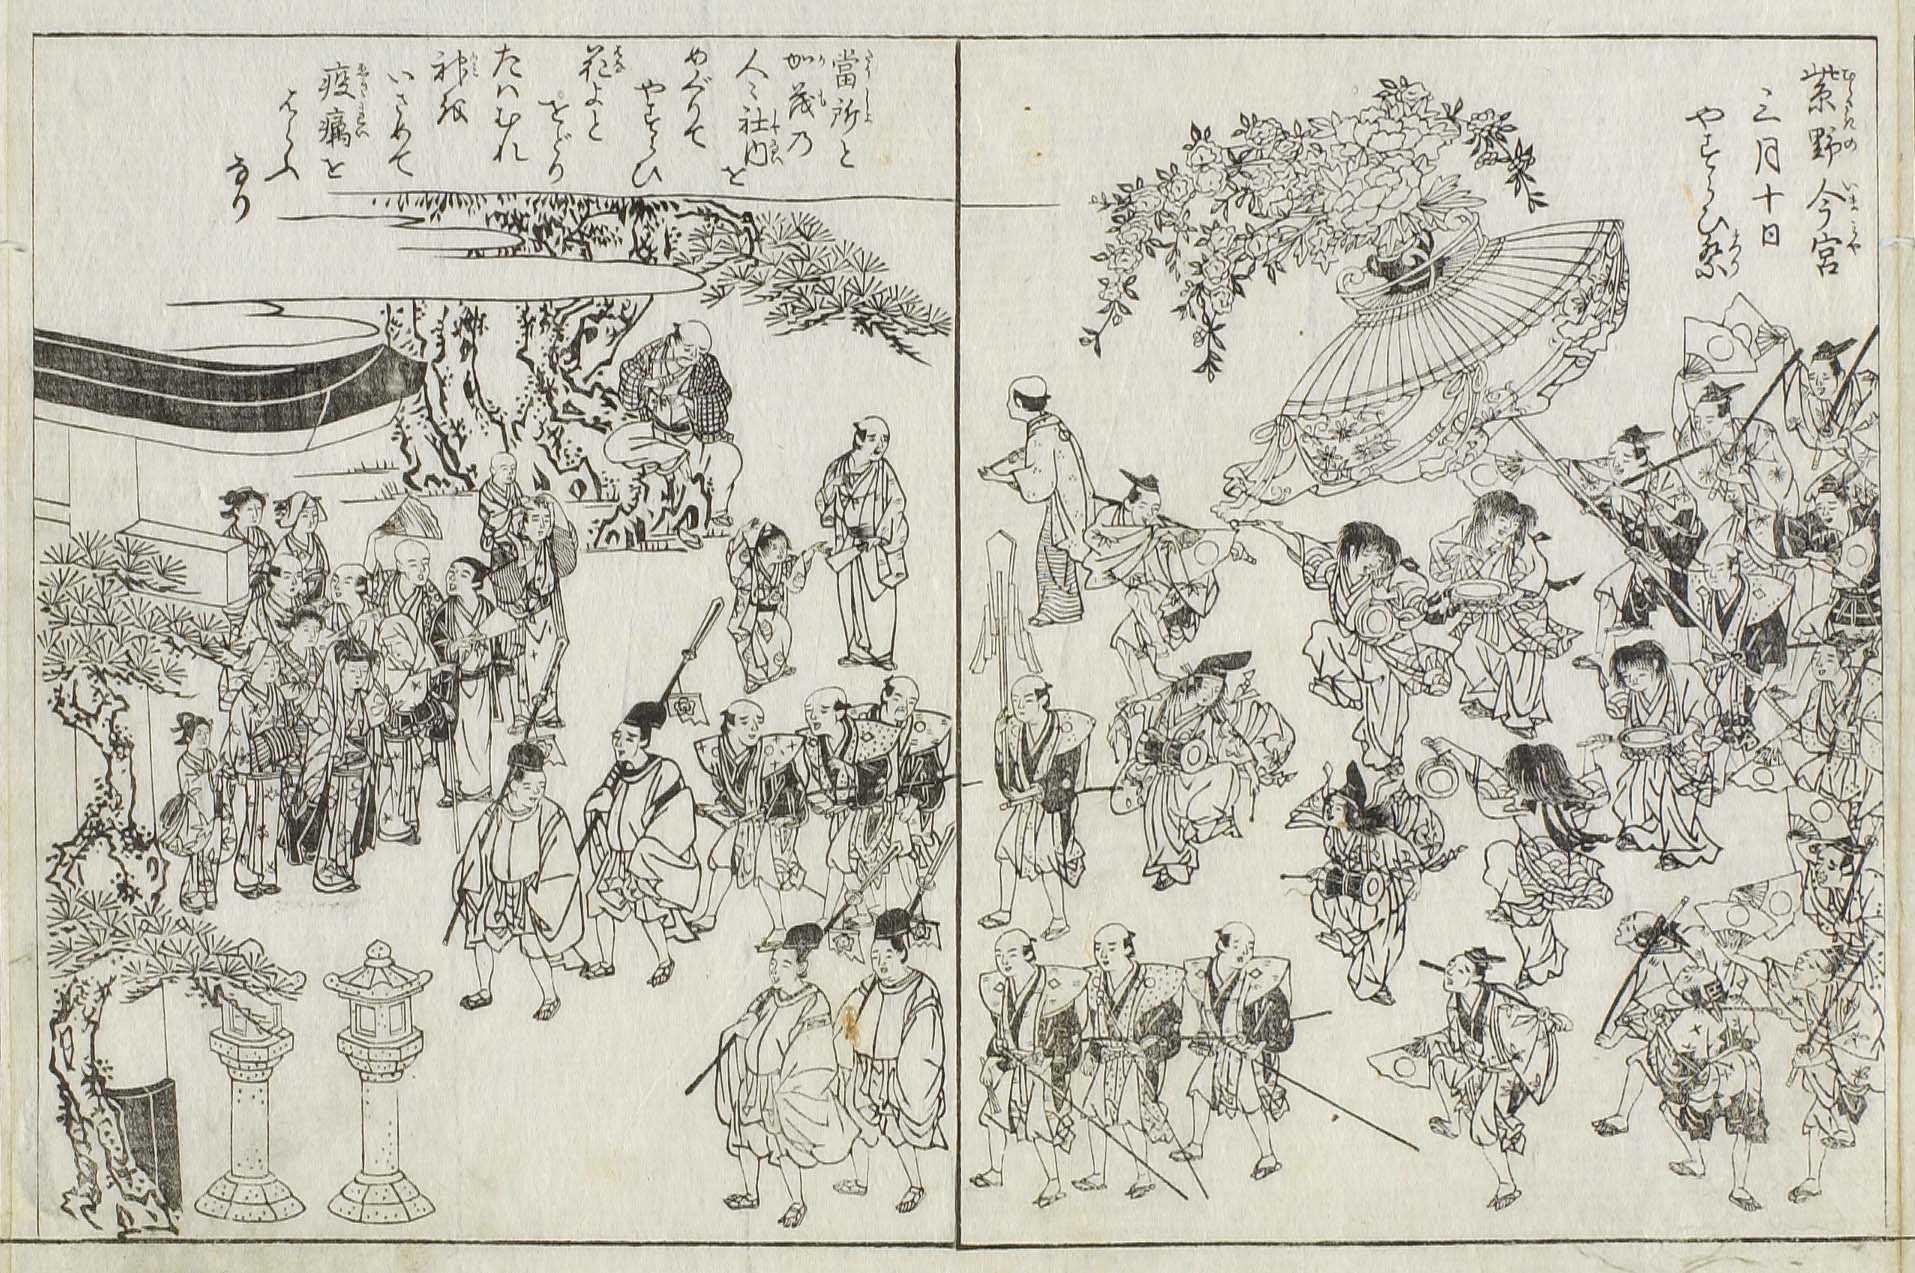 紫野今宮
三月十日
やすらひ祭
當所と
加茂乃
人々社内を
めぐりて
やすらひ
花よと
をどり
たはむれ
神を
いさめて
疫癘を
はらふ
なり